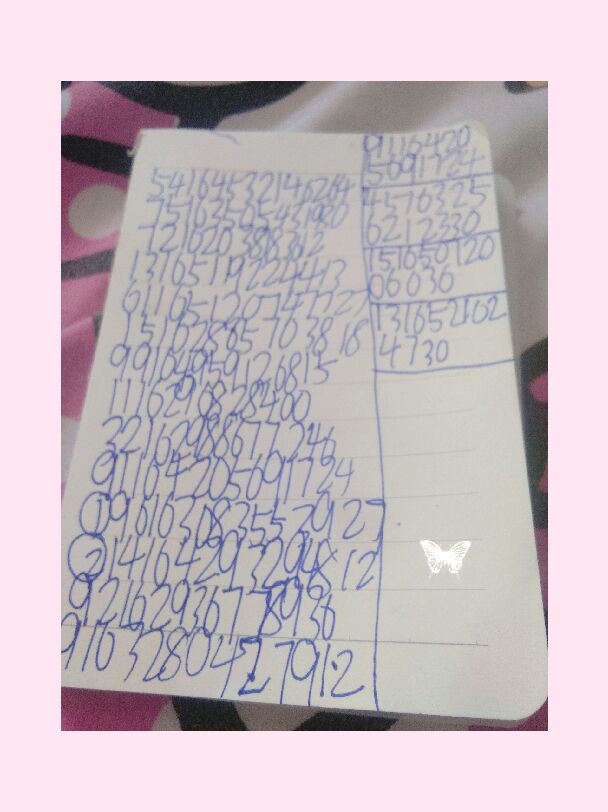 54164532146264
75163505431920
721620388362
1316519224413
6116512074727
1516288576381 8
99164959126815
111629828400
3216298867724 6
9116420569 1724
19616308355 2912 7
214164293294812
921629367 78936
9163280427912
9116420
5691724
4576325
6212330
151650120
06036
131652102
4730